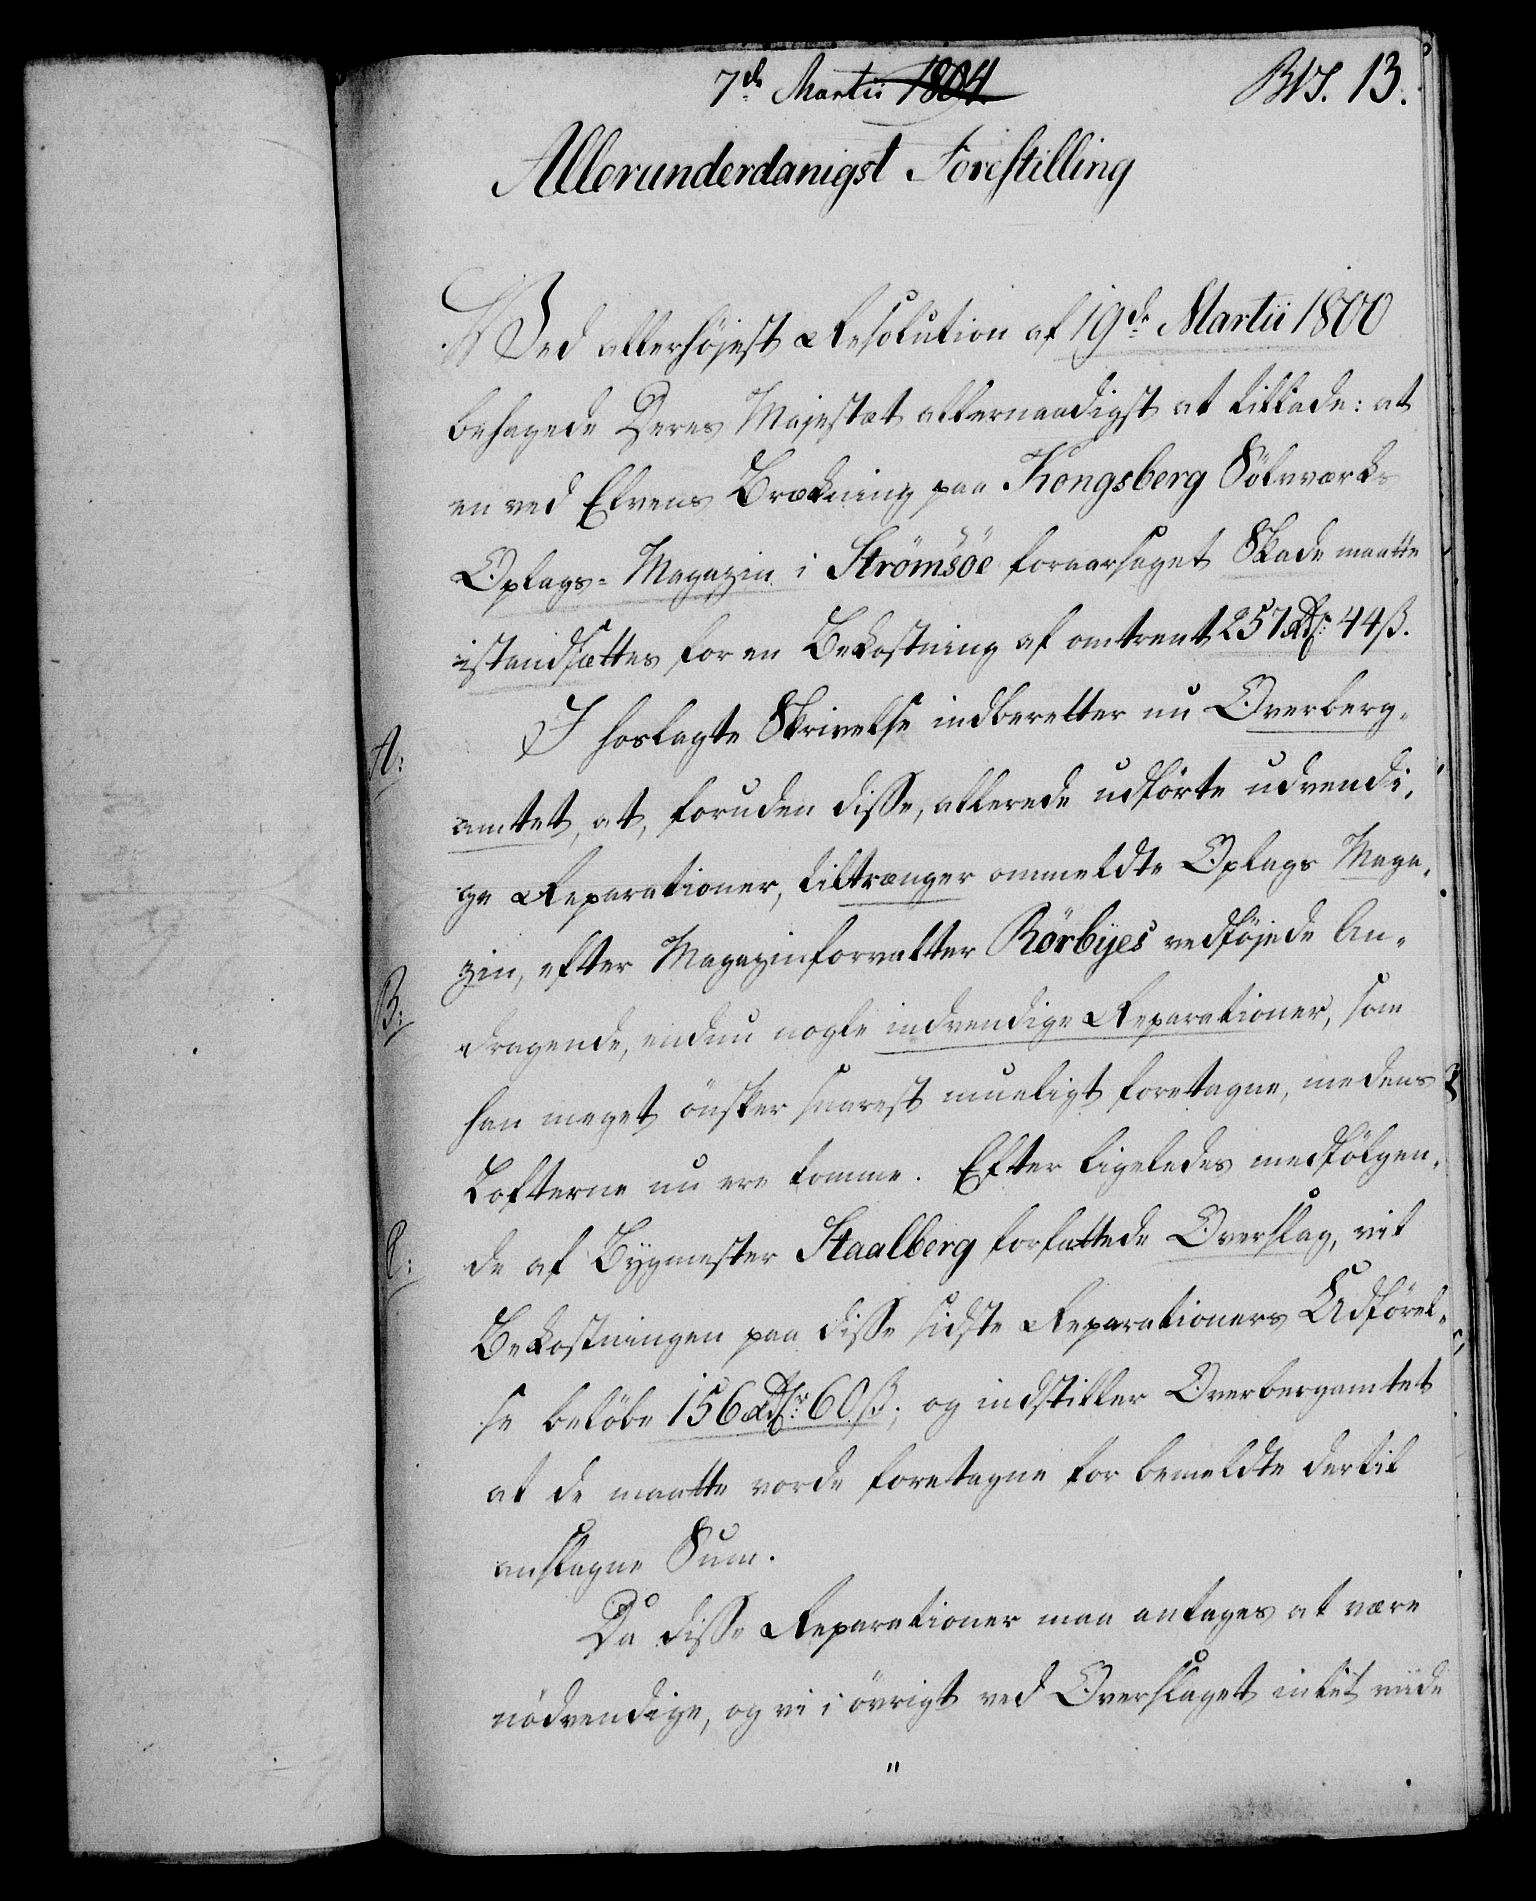 7de Martii 1804
No. 13.
Allerunderdanigst Forestilling
Ved allerhøjest Resolution af 19de Martii 1800
behagede Deres Majestæt allernaadigst at tillade: at
en ved Elvens Brækning paa Kongsberg Sölvværks
Oplags-Magazin i Strömsöe foraarsaget Skade maatte
istandsættes for en Bekostning af omtrent 257 Rdr. 44 ß.
A:
I hoslagte Skrivelse indberetter nu Overberg-
amtet, at, foruden disse, allerede udförte udvendi-
ge Reparationer, tiltrænger ommeldte Oplags Maga-
zin, efter Magazinforvalter Rörbyes vedföjede An-
B:
dragende, endnu nogle indvendige Reparationer, som
han meget önsker snarest mueligt foretagne, medens
Lofterne nu ere tomme. Efter ligeledes medfölgen-
C:
de af Bygmester Staalberg forfattede Overslag, vil
Bekostningen paa disse sidste Reparationers Udförel-
se belöbe 156 Rdr. 60 ß; og indstiller Overbergamtet
at de maatte vorde foretagne for bemeldte dertil
anslagne Sum.
Da disse Reparationer maa antages at være
nödvendige, og vi i övrigt ved Overslaget intet viide
"